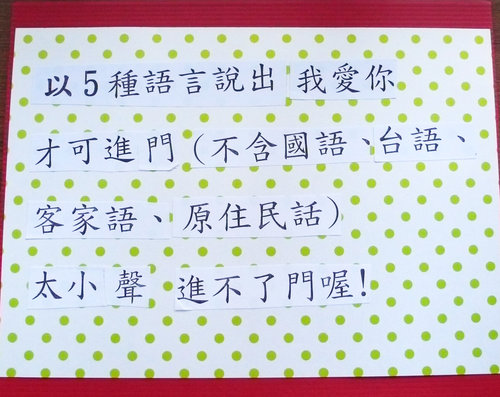 以5種語言說出 我愛你
才可進門(不含國語、台語、
客家語、原住民話)
太小聲 進不了門喔!